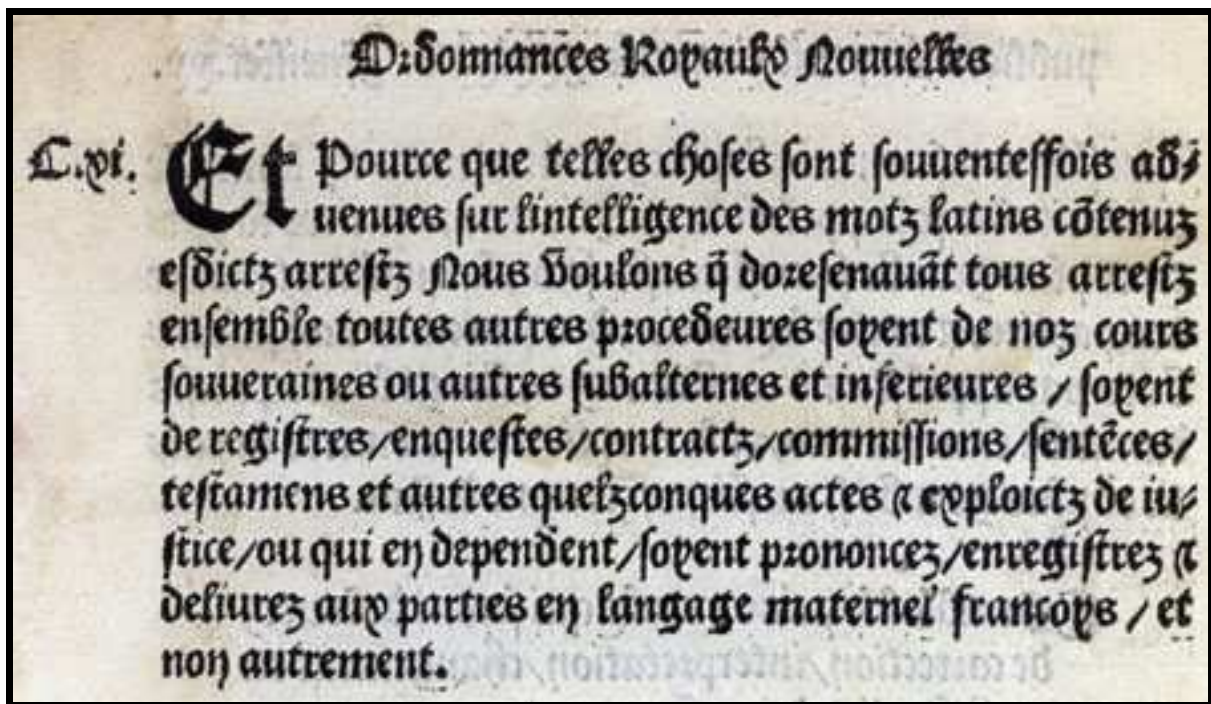 Ordonnances Royaulx Nouuelles
C.xi. Et Pource que telles choses sont souuenteffois ad⸗
uenues sur lintelligence des motz latins cõtenuz
esdictz arrestz Nous voulons q̃ doresenauãt tous arrestz
ensemble toutes autres procedeures soyent de noz cours
souueraines ou autres subalternes et inferieures / soyent
de registres/enquestes/contractz/commissions/sentẽces/
testamens et autres quelzconques actes ⁊ exploictz de iu⸗
stice/ou qui en dependent/soyent prononcez/enregistrez ⁊
deliurez aux parties en langage maternel francoys / et
non autrement.